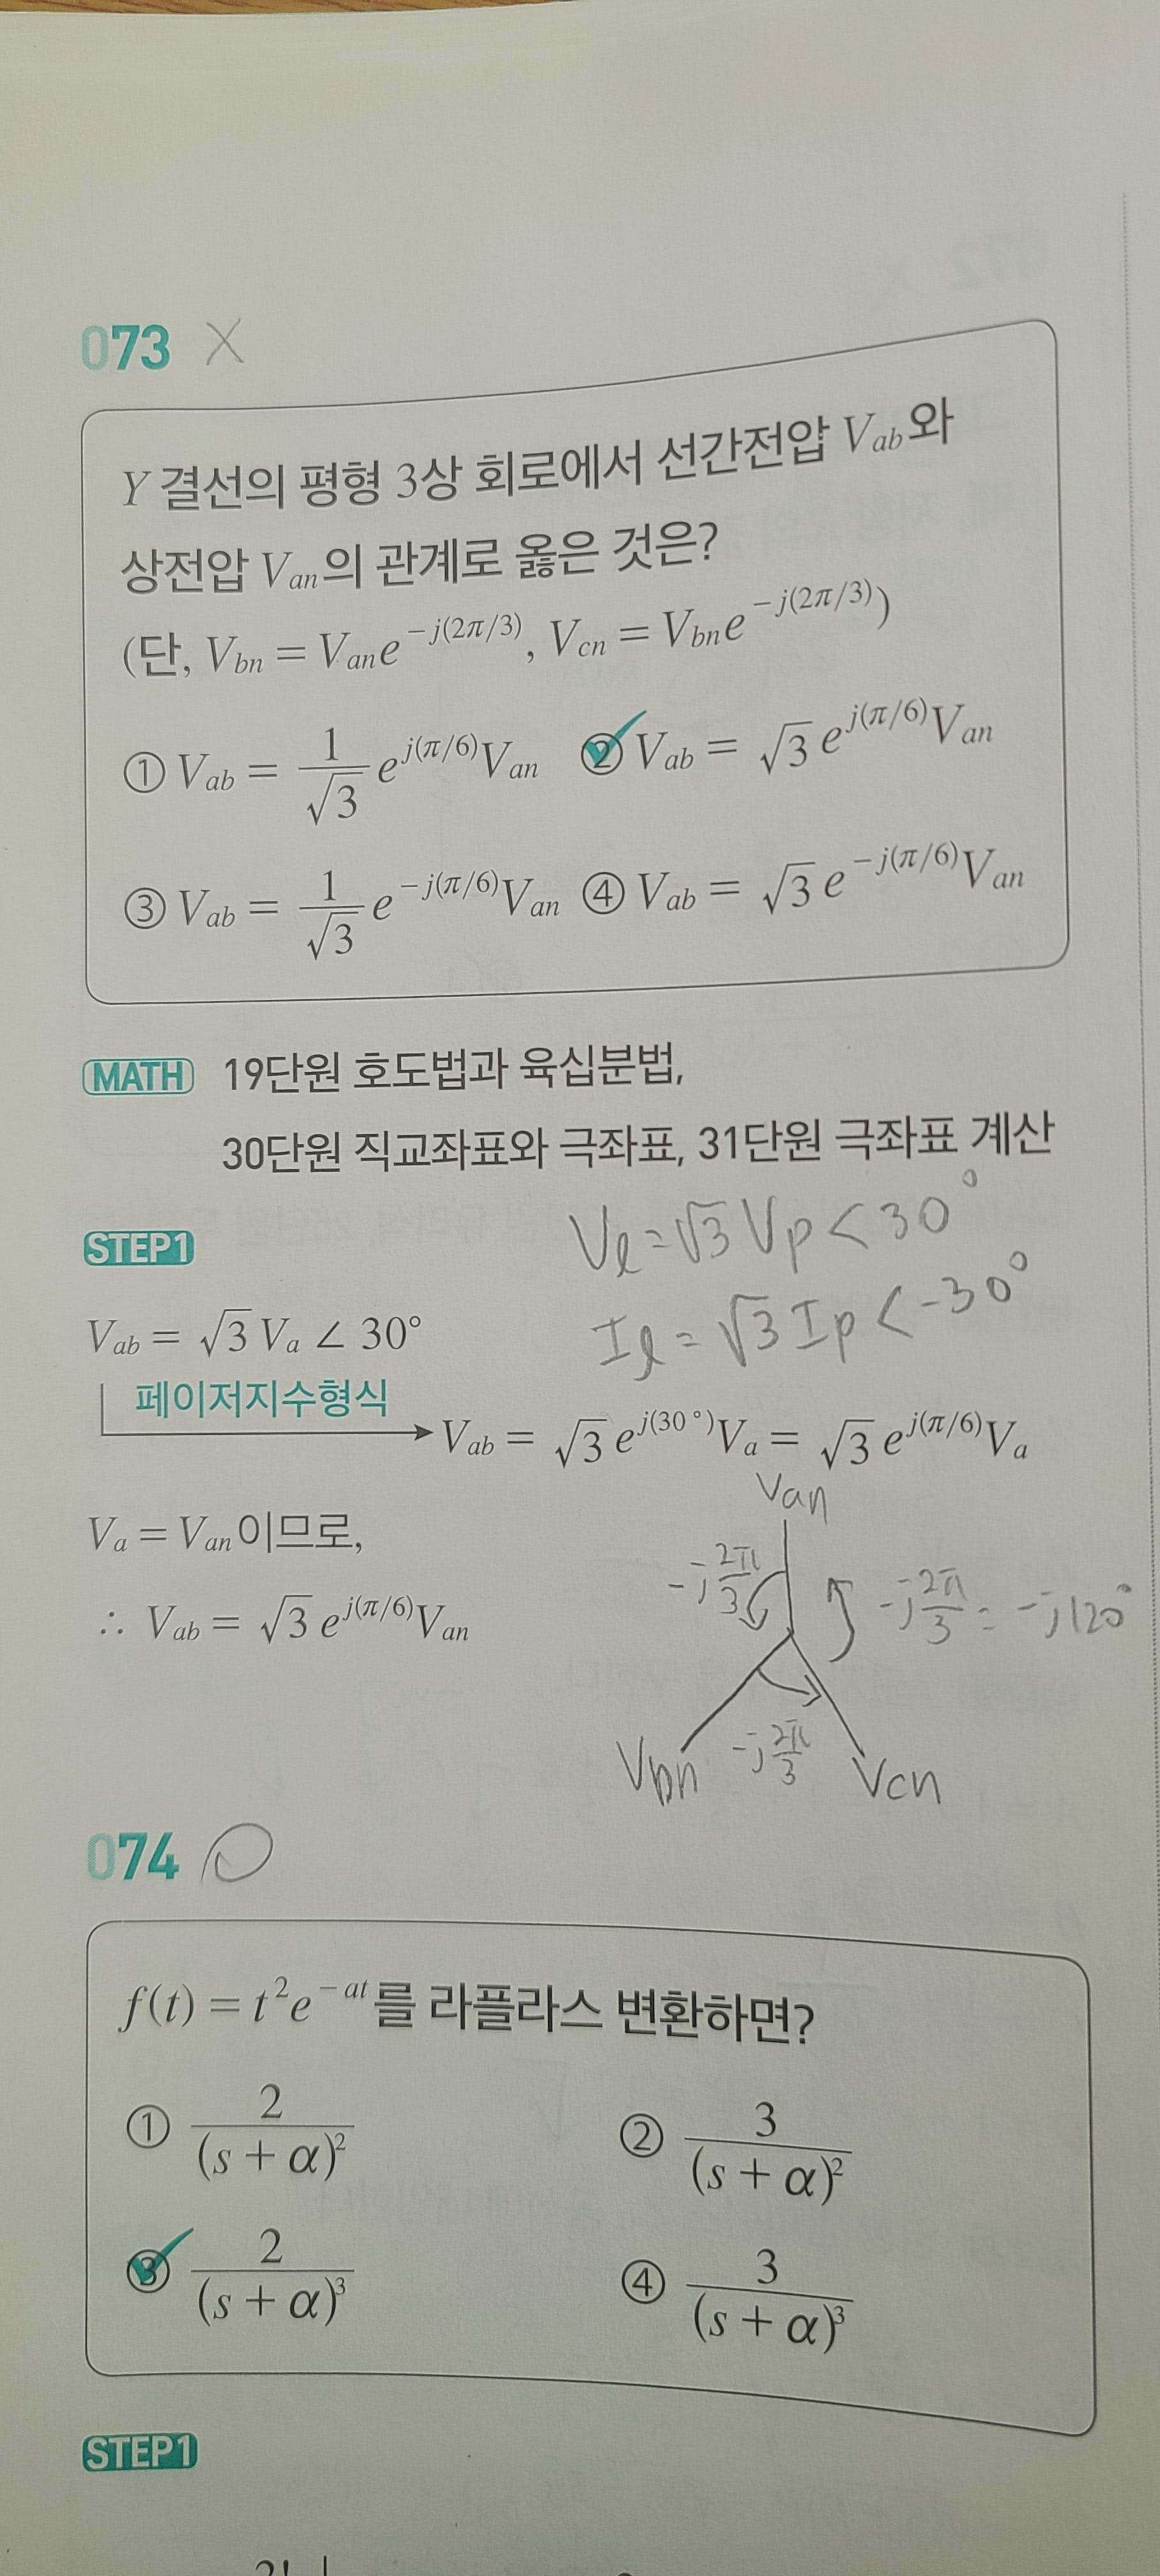 073 X
Y 결선의 평형 3상 회로에서 선간전압 Vab와
상전압 Van의 관계로 옳은 것은?
(단, Vbn = Van e^-j(2π/3), Vcn = Vbn e^-j(2π/3))
① Vab = 1/√3 e^j(π/6) Van ② Vab = √3 e^j(π/6) Van
③ Vab = 1/√3 e^-j(π/6) Van ④ Vab = √3 e^-j(π/6) Van
MATH 19단원 호도법과 육십분법,
30단원 직교좌표와 극좌표, 31단원 극좌표 계산
STEP1
Vl = √3 Vp < 30°
Il = √3 Ip < -30°
Vab = √3 Va ∠ 30°
페이저지수형식
Vab = √3 e^j(30°) Va = √3 e^j(π/6) Va
Va = Van이므로,
∴ Vab = √3 e^j(π/6) Van
Van
-j 2π/3
-j 2π/3 = -j120°
Vbn -j 2π/3 Vcn
074 O
f(t) = t²e^-at를 라플라스 변환하면?
① 2/(s + α)² ② 3/(s + α)²
③ 2/(s + α)³ ④ 3/(s + α)³
STEP1